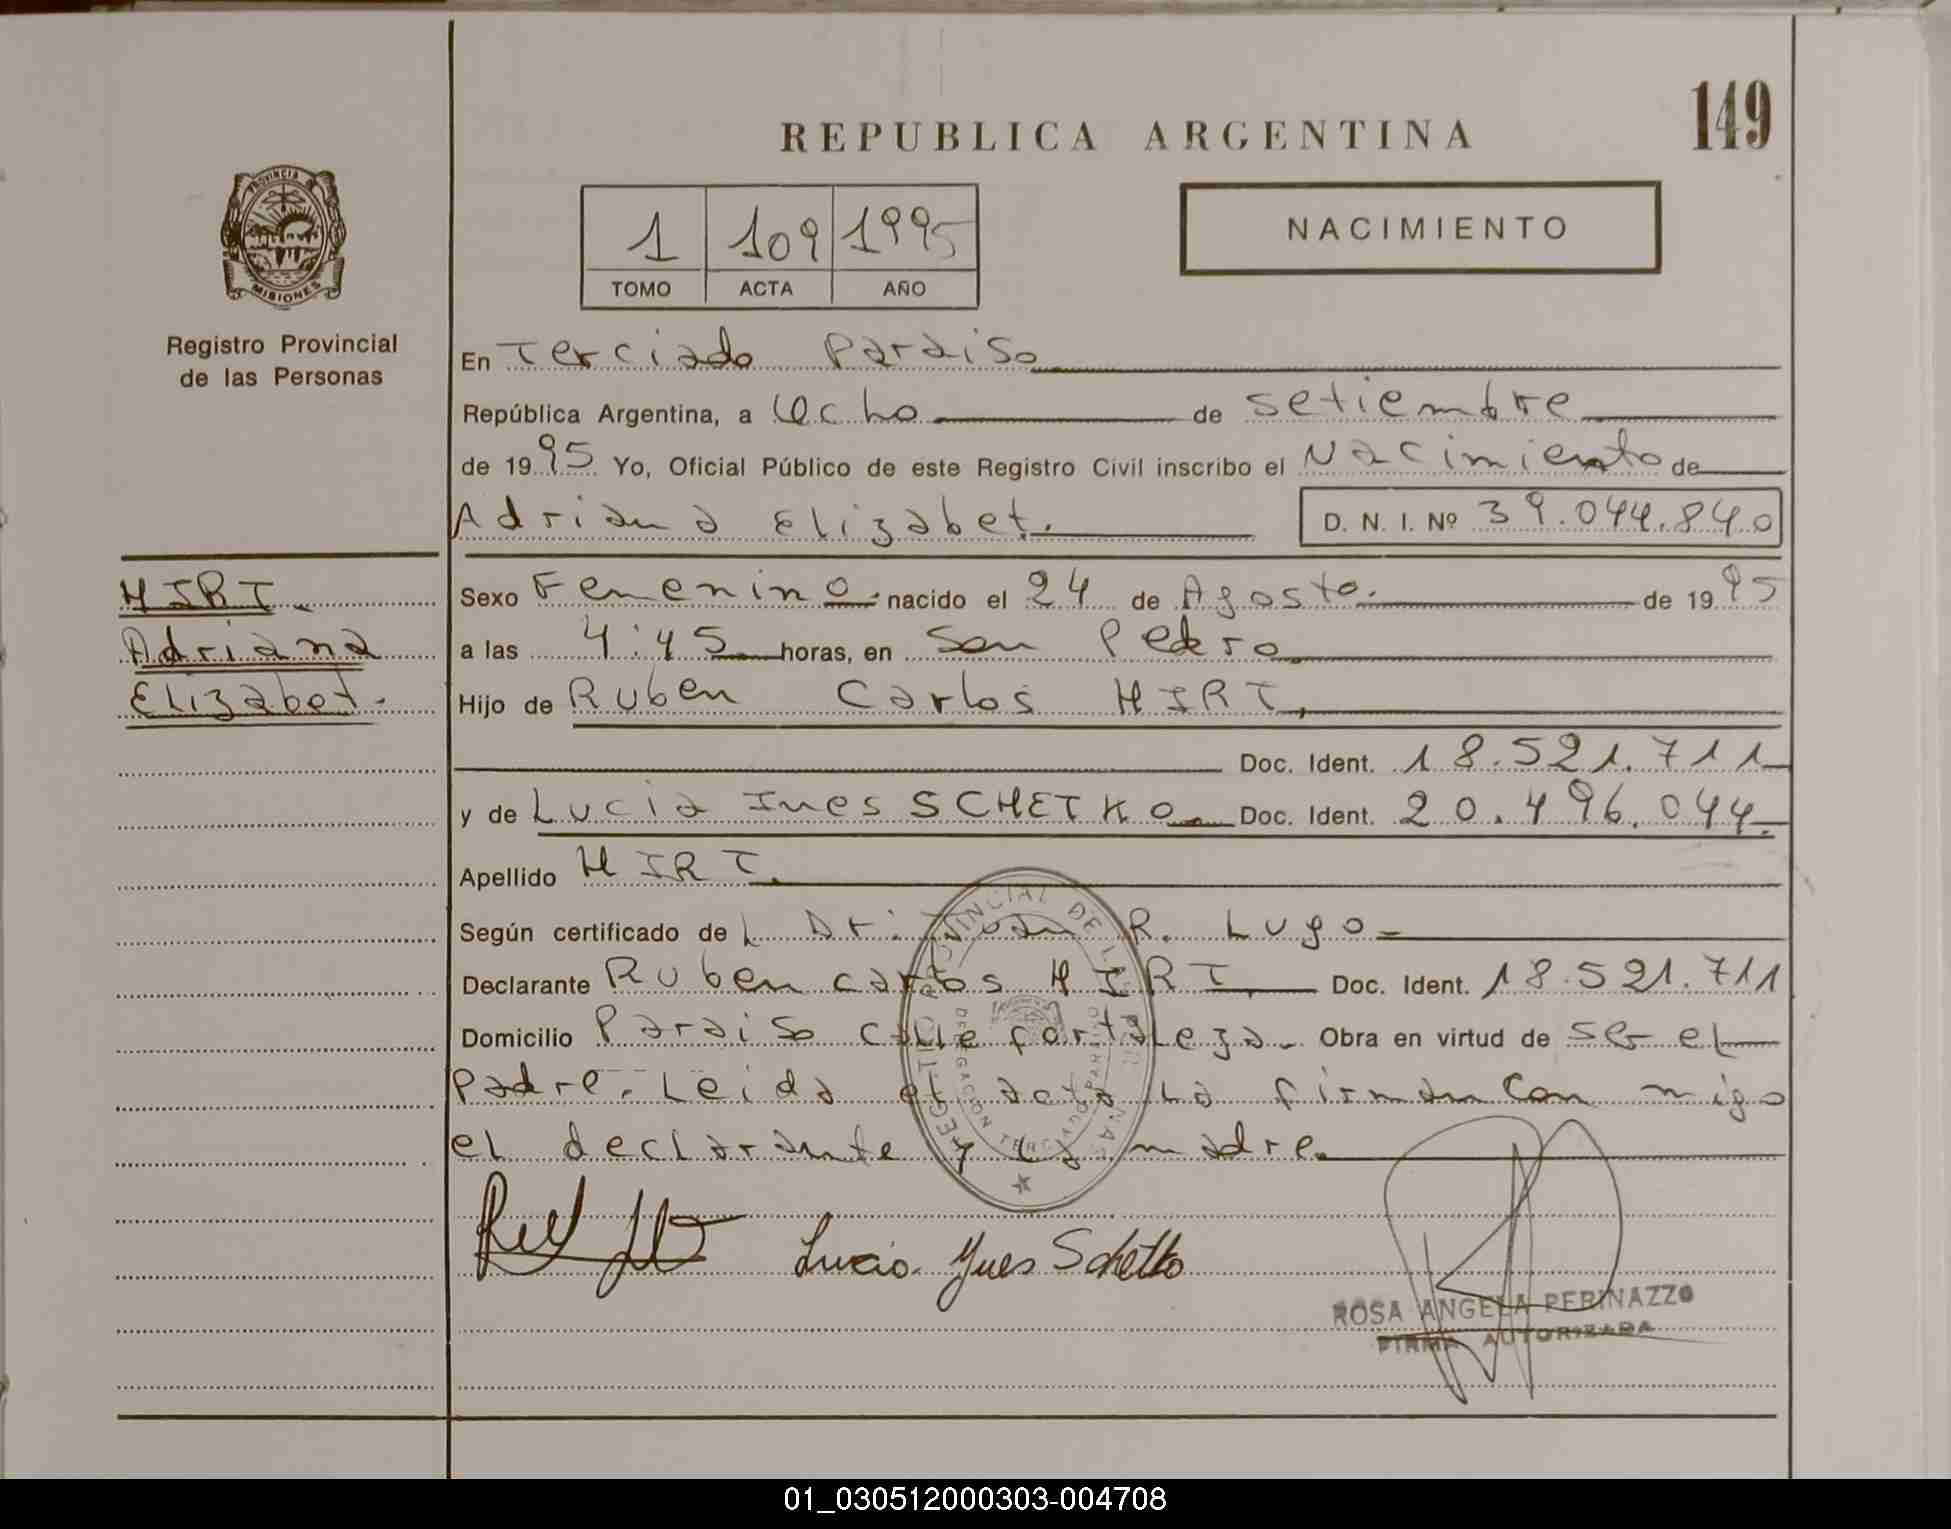 149
REPUBLICA ARGENTINA
1 109 1995
TOMO ACTA AÑO
NACIMIENTO
PROVINCIA
MISIONES
Registro Provincial
de las Personas
En Terciado Paraiso
República Argentina, a Ocho de setiembre
de 1995 Yo, Oficial Público de este Registro Civil inscribo el Nacimiento de
Adriana Elizabet. D. N. I. Nº 39.044.840
HIRT
Adriana
Elizabet.
Sexo Femenino. nacido el 24 de Agosto. de 1995
a las 4:45 horas, en San Pedro
Hijo de Ruben Carlos HIRT,
Doc. Ident. 18.521.711
y de Lucia Ines SCHETKO Doc. Ident. 20.496.044.
Apellido HIRT.
Según certificado de L Dr: R. Lugo
Declarante Ruben carlos HIRT Doc. Ident. 18.521.711
Domicilio Paraiso calle fortaleza. Obra en virtud de ser el
padre. Leida el acta la firman con migo
el declarante y la madre.
Lucia Ynes Schetko
ROSA ANGELA PERINAZZO
FIRMA AUTORIZADA
01_030512000303-004708